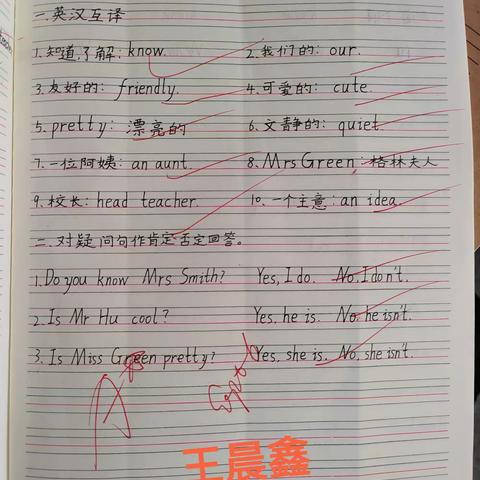 一.英汉互译
1.知道,了解:know. 2.我们的:our.
3.友好的:friendly. 4.可爱的:cute.
5.pretty:漂亮的 6.文静的:quiet.
7.一位阿姨:an aunt. 8.Mrs Green:格林夫人
9.校长:head teacher. 10.一个主意:an idea.
二.对疑问句作肯定否定回答。
1.Do you know Mrs Smith? Yes, I do. No, I don't.
2.Is Mr Hu cool? Yes, he is. No, he isn't.
3.Is Miss Green pretty? Yes, she is. No, she isn't.
王晨鑫